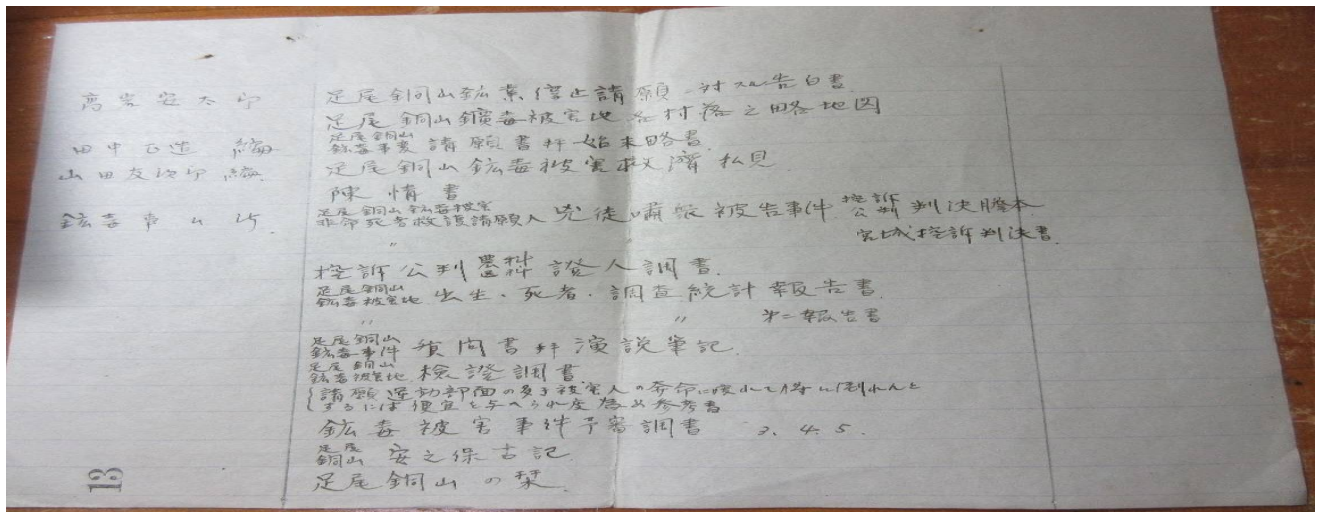 足尾銅山鉱業停止請願ニ対スル告白書
足尾銅山鑛毒被害地各村落之略地図
田中正造 編
足尾銅山
鉱毒事変 請願書并始末略書
山田友次郎 編
足尾銅山鉱毒被害救済私見
陳情書
鉱毒事ム所
足尾銅山鉱毒被害
非命死者救護請願人 兇徒嘯聚被告事件 控訴公判 判決謄本
〃 宮城控訴判決書
控訴公判 農科医科 證人調書
足尾銅山
鉱毒被害地 出生・死者・調査統計報告書
〃 〃 第二報告書
足尾銅山
鉱毒事件 質問書并演説筆記
足尾銅山
鉱毒被害地 検證調書
請願運動部面の多手被害人の奔命に疲れて将に倒れんと
するには便宜を与へられ度為め参考書
鉱毒被害事件予審調書 3. 4. 5.
足尾
銅山 安之保古記
足尾銅山の栞
13